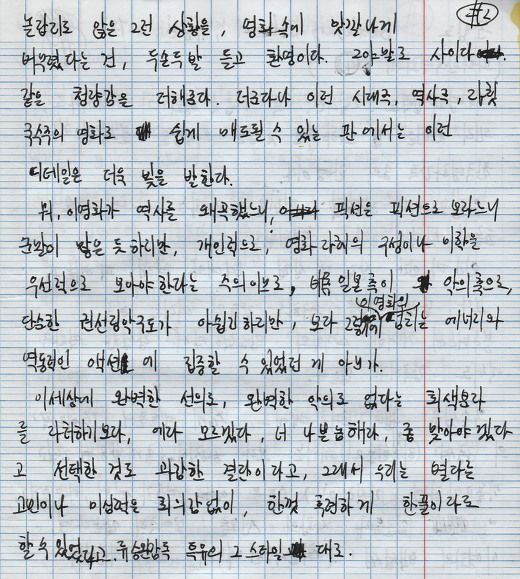 #2
눈감고도 않을 그런 상황을, 영화 속에 맛깔나게
버무렸다는 건, 두손두발 들고 환영이다. 그야말로 사이다
같은 청량감을 더해준다. 더군다나 이런 시대극, 역사극, 자칫
국수주의 영화로 쉽게 매도될 수 있는 판에서는 이런
디테일은 더욱 빛을 발한다.
뭐, 이영화가 역사를 왜곡했느니, 픽션은 픽션으로 보라느니
논란이 많은 듯 하지만, 개인적으로, 영화 자체의 구성이나 미학을
우선적으로 보아야 한다는 주의이므로, 일본 측이 악의 축으로,
단순한 권선징악구도가 아쉽긴하지만, 보다 이영화의 넘치는 에너지와
역동적인 액션에 집중할 수 있었던 게 아닌가.
이세상에 완벽한 선의로, 완벽한 악의로 없다는 회색분자
를 자처하기보다, 에라 모르겠다, 너 나쁜놈 해라, 좀 맞아야겠다
고 선택한 것도 과감한 결단이라고, 그래서 우리는 별다른
고민이나 이성적은 회의감없이, 한껏 후련하게 한풀이라도
할 수 있었다고. 류승완감독 특유의 그 스타일 대로.